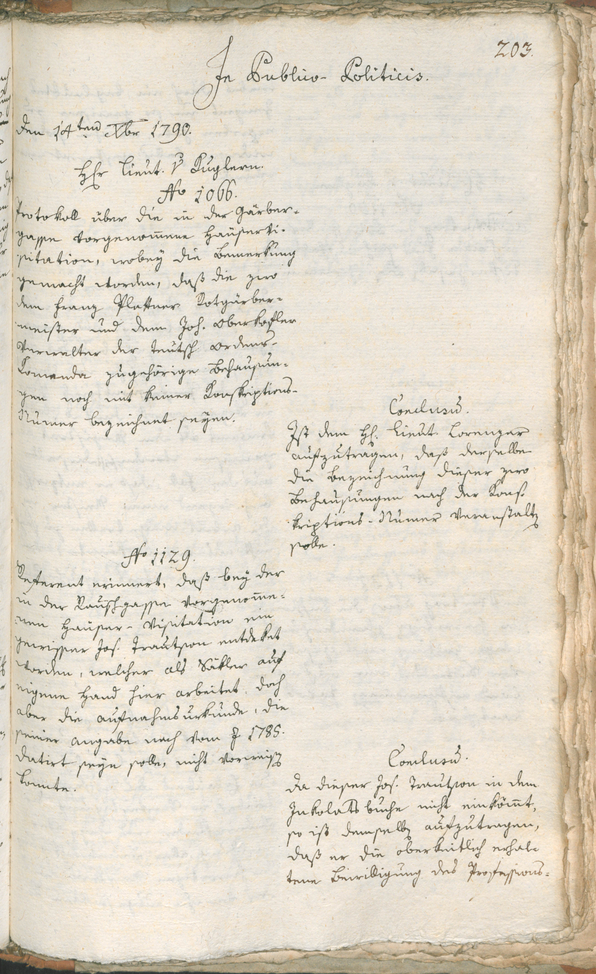 203.
In Publico-Politicis.
den 14ten Xbr 1790.
Hr Lieut. v Kuglern.
No 1066.
Protokoll über die in der Gärber-
gasse vorgenommene Häuservi-
sitation, wobey die Bemerkung
gemacht worden, daß die zwo
dem Franz Plattner Rotgärber-
meister und dem Joh. Oberkofler
Verwalter der teutsch Ordens-
Comenda zugehörige Behausun-
gen noch mit keiner Konskriptions-
Numer bezeichnet seyen.
Conclusu.
Ist dem H. Lieut Lorenzer
aufzutragen, daß derselbe
die Bezeichnung dieser zwo
Behausungen nach der Kons-
kriptions-Numer veranstalt
solle.
No 1129.
Referent erinnert, daß bey der
in der Rauschgasse vorgenomme-
nen Häuser-Visitation ein
gewisser Jos. Trautson entdeket
worden, welcher als Säkler auf
eigene Hand hier arbeitet, doch
aber die Aufnahmsurkunde, die
seiner Angabe nach vom J. 1785.
datirt seyn solle, nicht vorweis
konnte.
Conclusu.
da dieser Jos. Trautson in dem
Inkolatsbuche nicht einkömt,
so ist demselb aufzutragen,
daß er die oberkeitlich erhal-
tene Bewilligung des Professions-